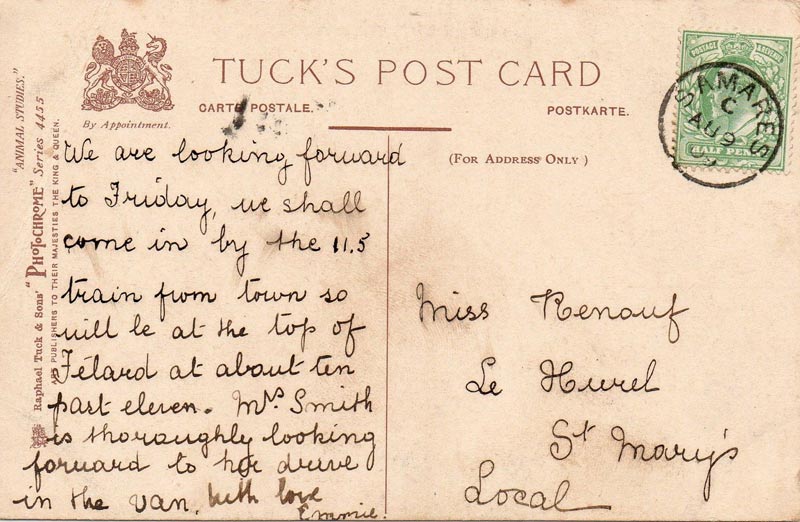 TUCK'S POST CARD
CARTE POSTALE.
POSTKARTE.
By Appointment.
(FOR ADDRESS ONLY)
"ANIMAL STUDIES."
Raphael Tuck & Sons' "PHOTOCHROME" Series 4455
ART PUBLISHERS TO THEIR MAJESTIES THE KING & QUEEN.
POSTAGE & REVENUE
HALF PENNY
SAMARES
C
AU 9
09
We are looking forward
to Friday, we shall
come in by the 11.5
train from town so
will be at the top of
Félard at about ten
past eleven. Mrs Smith
is thoroughly looking
forward to her drive
in the van. With love
Emmie.
Miss Renouf
Le Hurel
St Mary's
Local